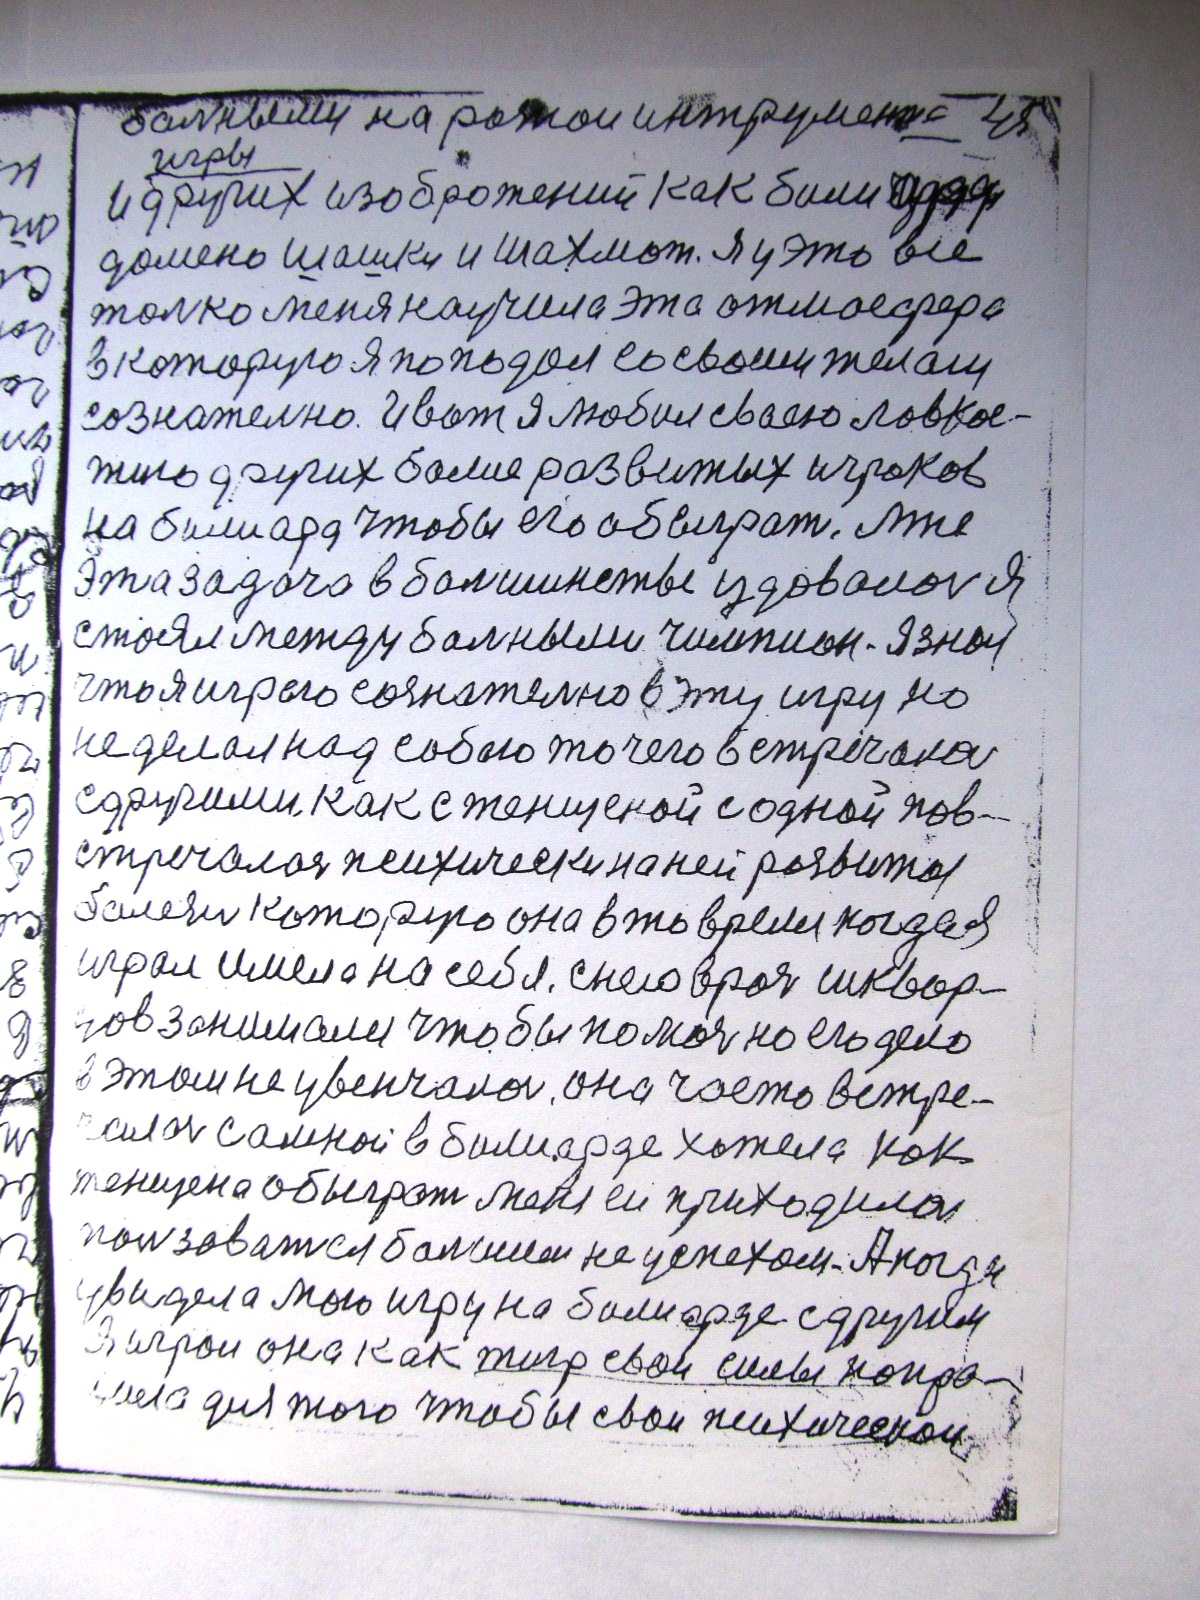 болными на ротои интрументе 48
игры
и других изоброжений как били
домено шашки и шахмот. Я у это все
толко меня научила эта отмоесфера
в которую я поподол со своими телами
сознателно. И вот я любил своею ловкос-
тию других более развитых игроков
на билиард чтобы его обыграт. Мне
эта задача в болшинстве удовалос я
стоял между болными чимпион. Я зною
что я играю сознателно в эту игру но
не делал над собою то чего встречалос
с другими. как с женщеной с одной пов-
стречалося психически на ней развитоя
болезн которую она в то время когда я
играл имела на себя. с нею врач шквор-
цов занимали чтобы помоч но его дело
в этом не увенчалос. она често встре-
чалас самной в билиарде хотела как
женщена обыграт меня ей приходилос
ползоватся болшим не успехом. А когда
увидела мою игру на билиарде с другим
игрои она как тигр свои силы напра-
вила для того чтобы свои психическои